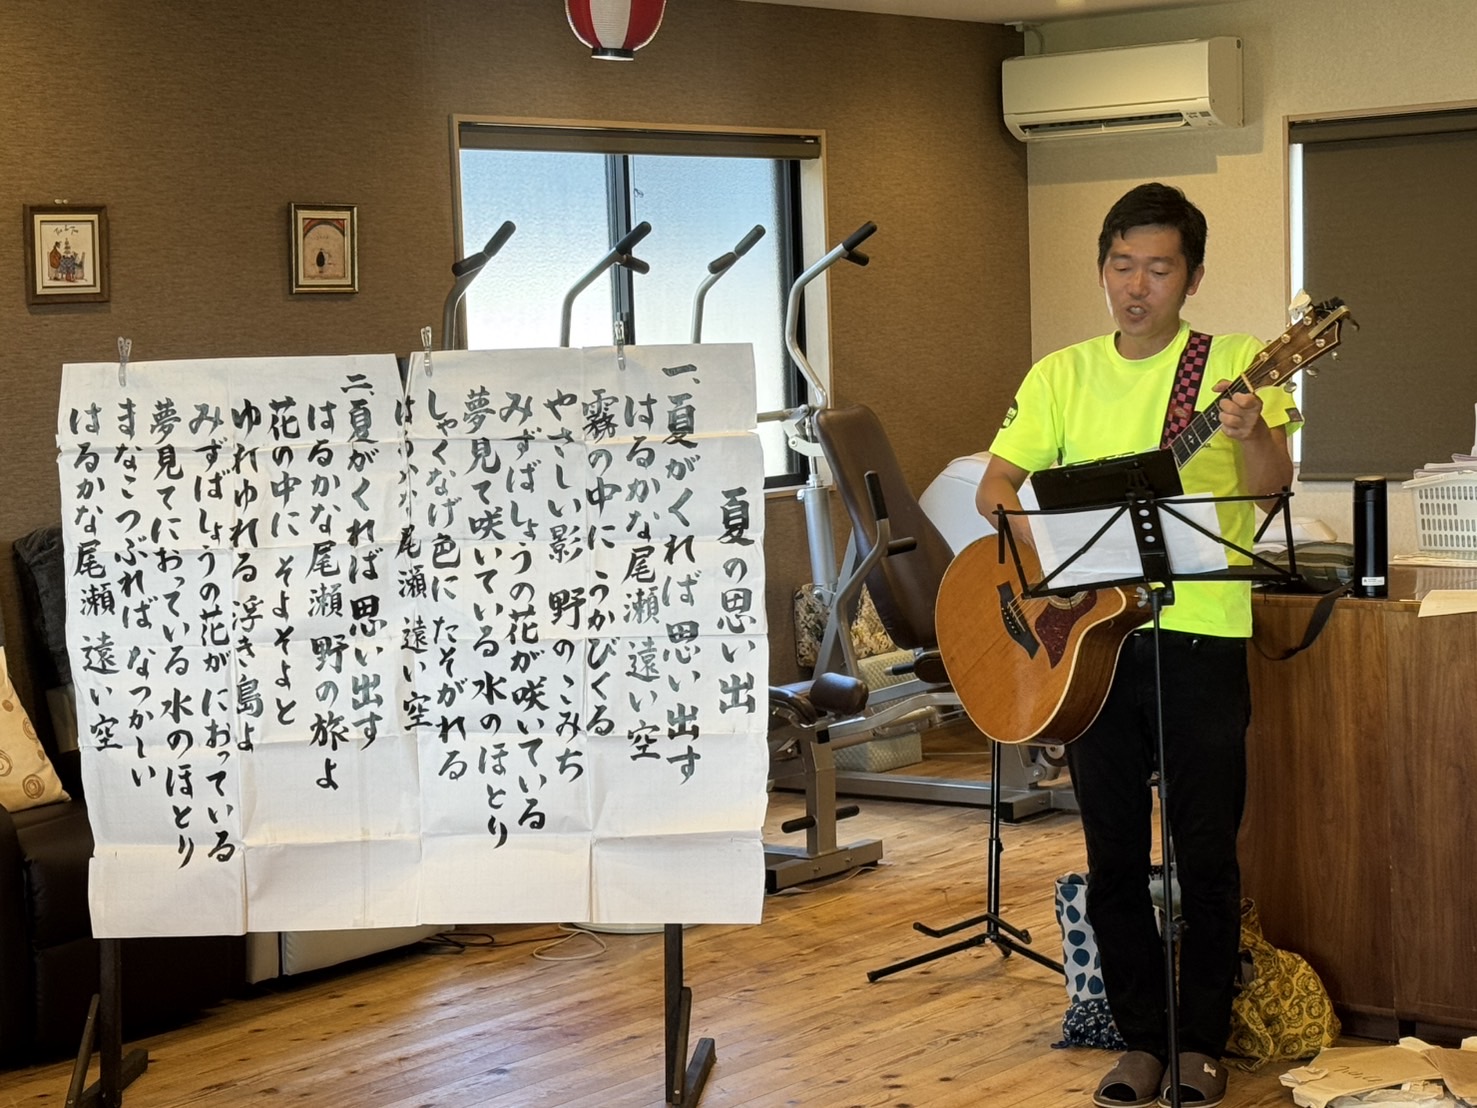 夏の思い出
一、夏がくれば思い出す
はるかな尾瀬 遠い空
霧の中に うかびくる
やさしい影 野のこみち
みずばしょうの花が咲いている
夢見て咲いている 水のほとり
しゃくなげ色に たそがれる
はるかな尾瀬 遠い空
二、夏がくれば思い出す
はるかな尾瀬 野の旅よ
花の中に そよそよと
ゆれゆれる 浮き島よ
みずばしょうの花がにおっている
夢見てにおっている 水のほとり
まなこつぶれば なつかしい
はるかな尾瀬 遠い空